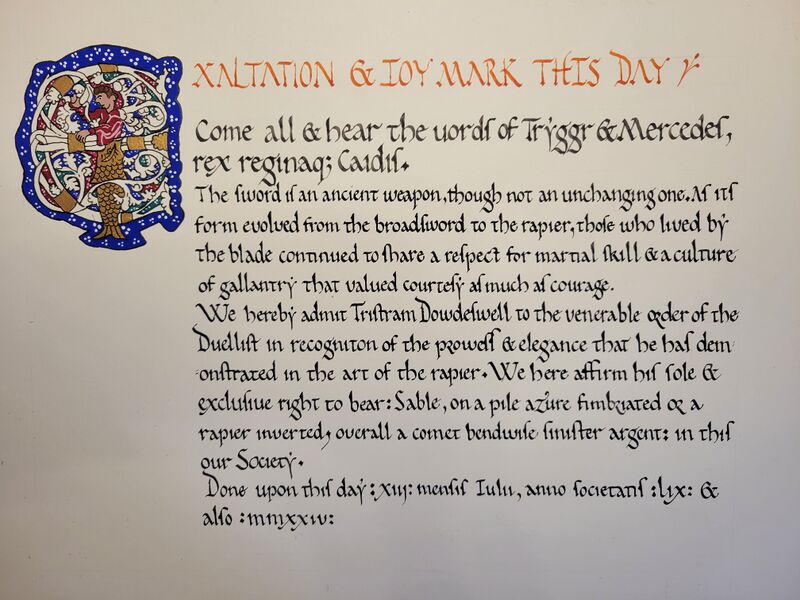 EXALTATION & IOY MARK THIS DAY
Come all & hear the words of Tryggr & Mercedes,
rex reginaq; Caidis.
The sword is an ancient weapon, though not an unchanging one. As its
form evolved from the broadsword to the rapier, those who lived by
the blade continued to share a respect for martial skill & a culture
of gallantry that valued courtesy as much as courage.
We hereby admit Tristram Dowdeswell to the venerable order of the
Duellist in recogniton of the prowess & elegance that he has dem
onstrated in the art of the rapier. We here affirm his sole &
exclusive right to bear: Sable, on a pile azure fimbriated or a
rapier inverted, overall a comet bendwise sinister argent: in this
our Society.
Done upon this day :xiij: mensis Iulii, anno societatis :lix: &
also :mmxxiv: